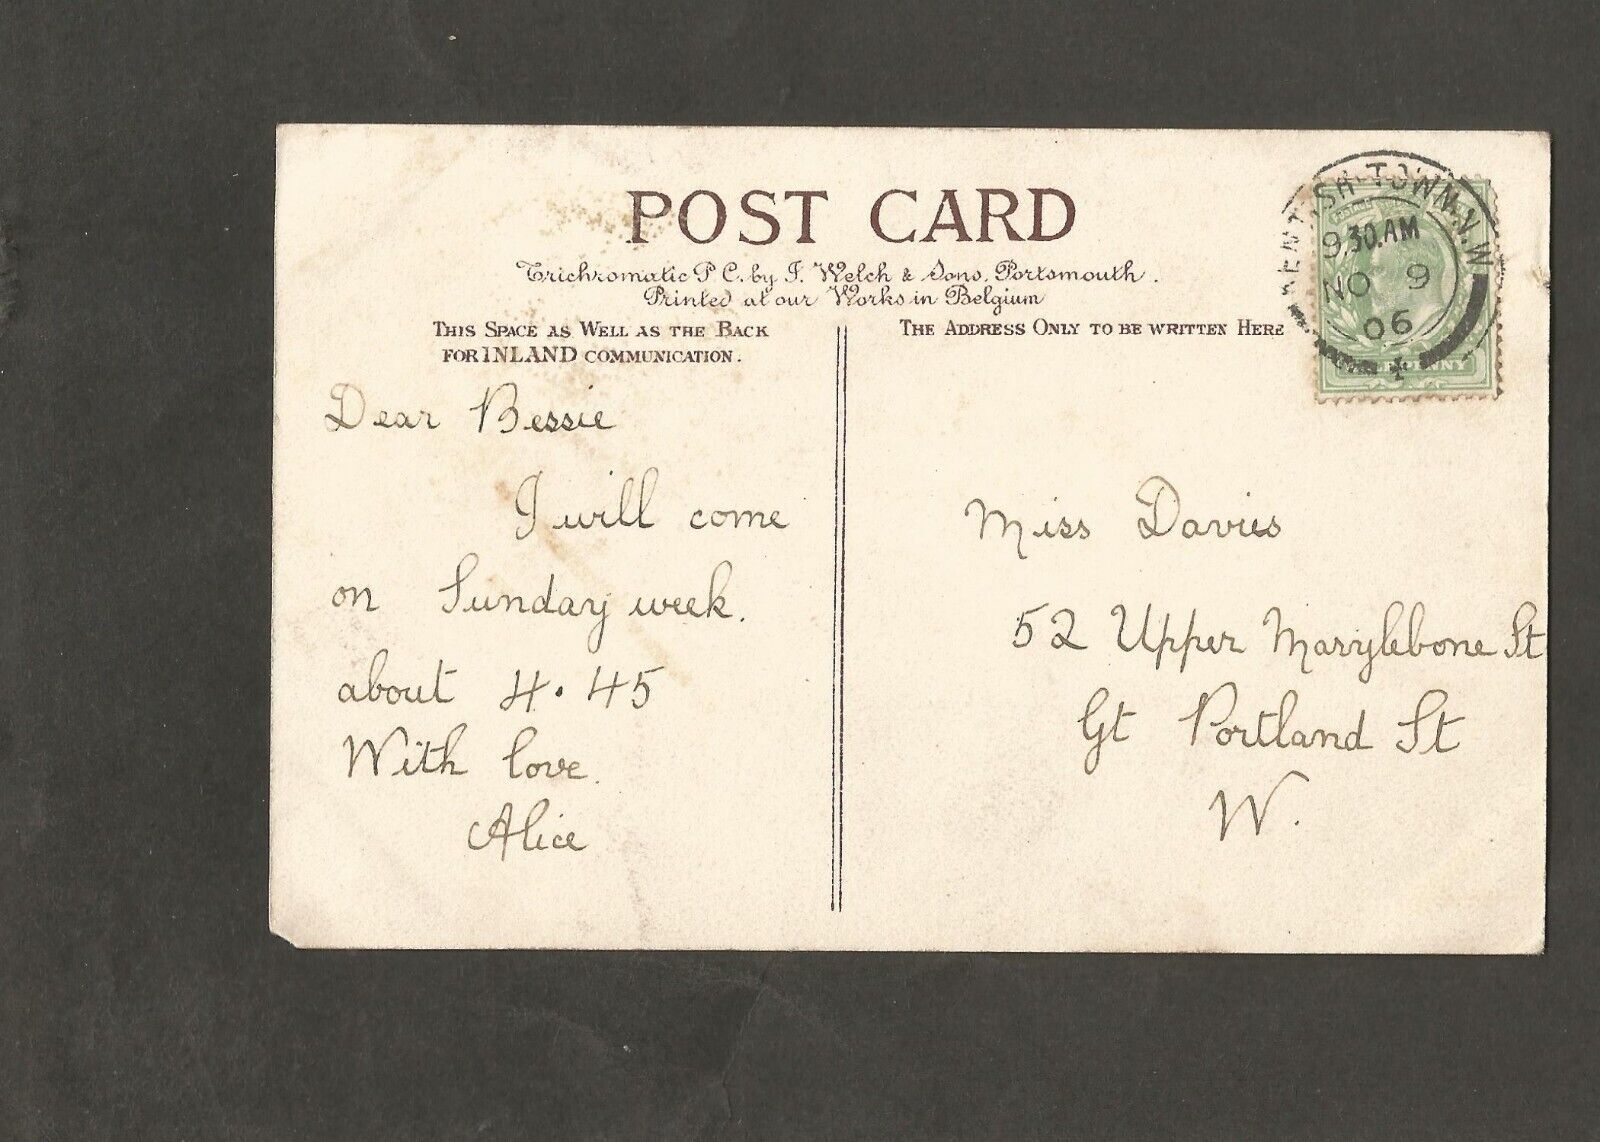 POST CARD
Trichromatic P C. by F. Welch & Sons, Portsmouth.
Printed at our Works in Belgium
THIS SPACE AS WELL AS THE BACK
FOR INLAND COMMUNICATION.
THE ADDRESS ONLY TO BE WRITTEN HERE
KENTISH-TOWN.N.W
9.30.AM
NO 9
06
Dear Bessie
I will come
on Sunday week.
about 4.45
With love.
Alice
Miss Davies
52 Upper Marylebone St
Gt Portland St
W.